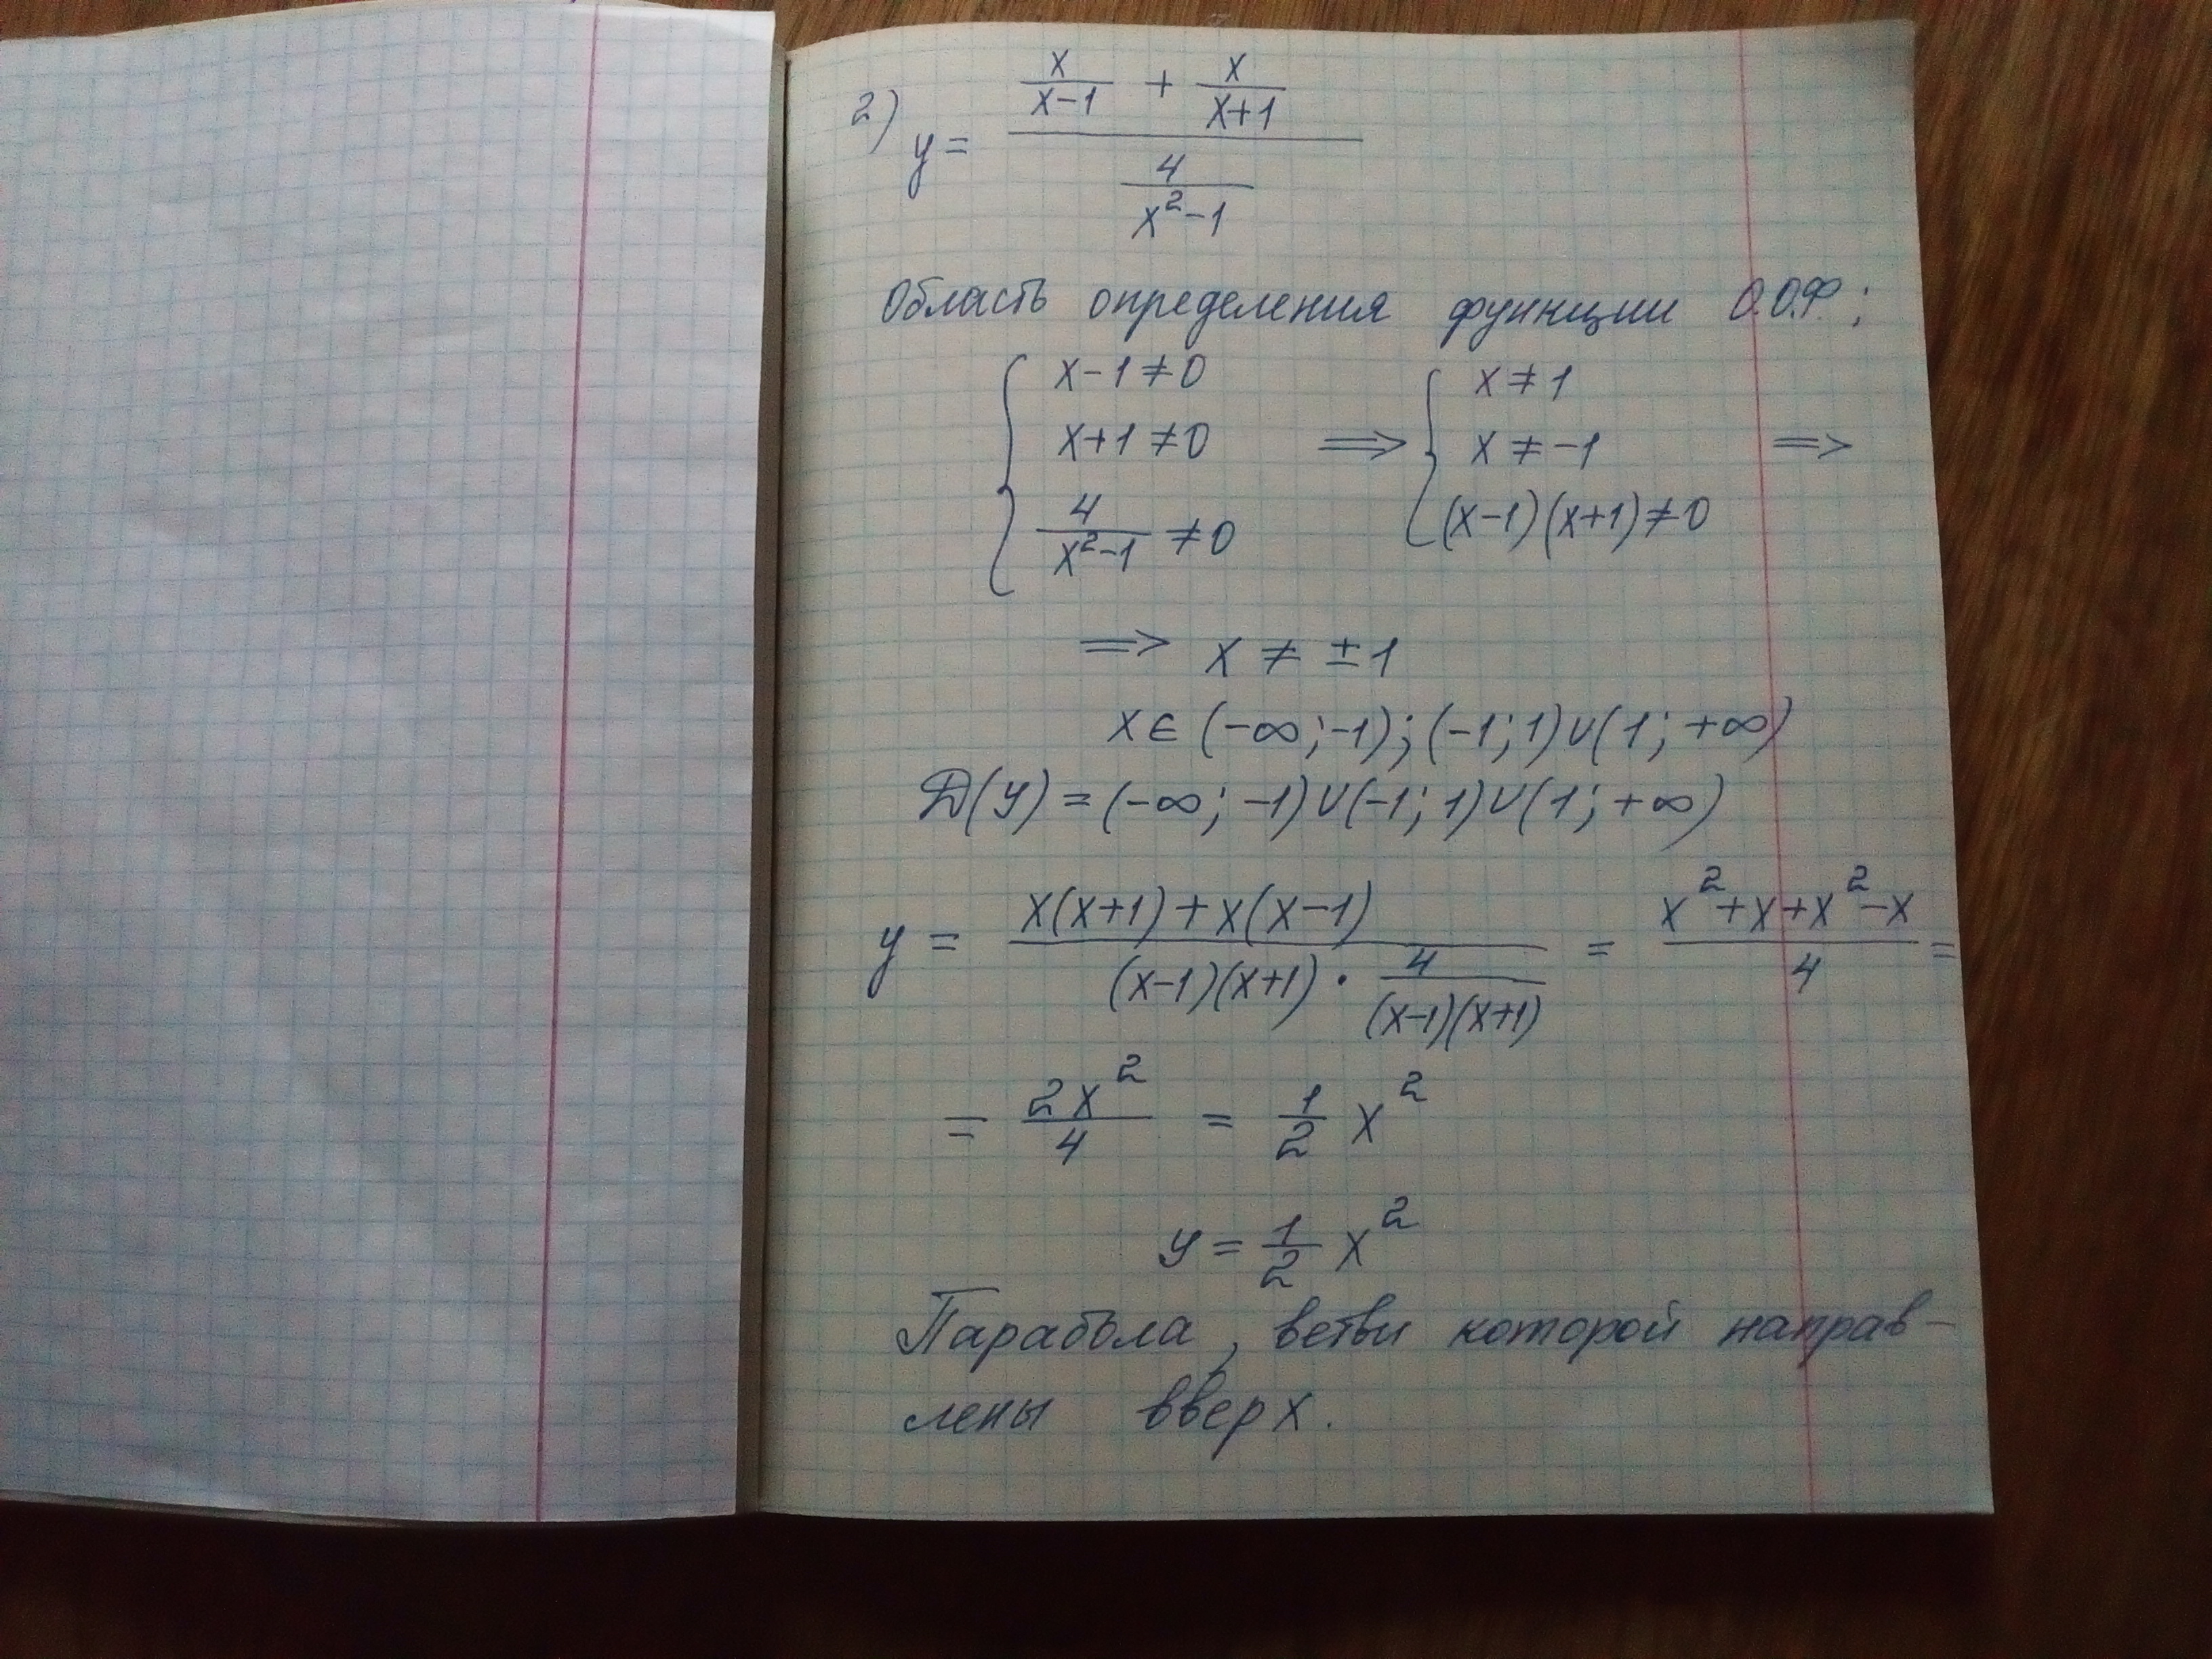 2) y = (x/(x-1) + x/(x+1)) / (4/(x²-1))
Область определения функции О.О.Ф:
{ x-1≠0 ; x+1≠0 ; 4/(x²-1) ≠0 ⟹ { x≠1 ; x≠-1 ; (x-1)(x+1)≠0 ⟹
⟹ x ≠ ±1
x ∈ (-∞;-1);(-1;1)∪(1;+∞)
D(y) = (-∞; -1)∪(-1; 1)∪(1; +∞)
y = (x(x+1)+x(x-1)) / ((x-1)(x+1) · 4/((x-1)(x+1))) = (x²+x+x²-x)/4 =
= 2x²/4 = 1/2 x²
y = 1/2 x²
Парабола, ветви которой направ-
лены вверх.